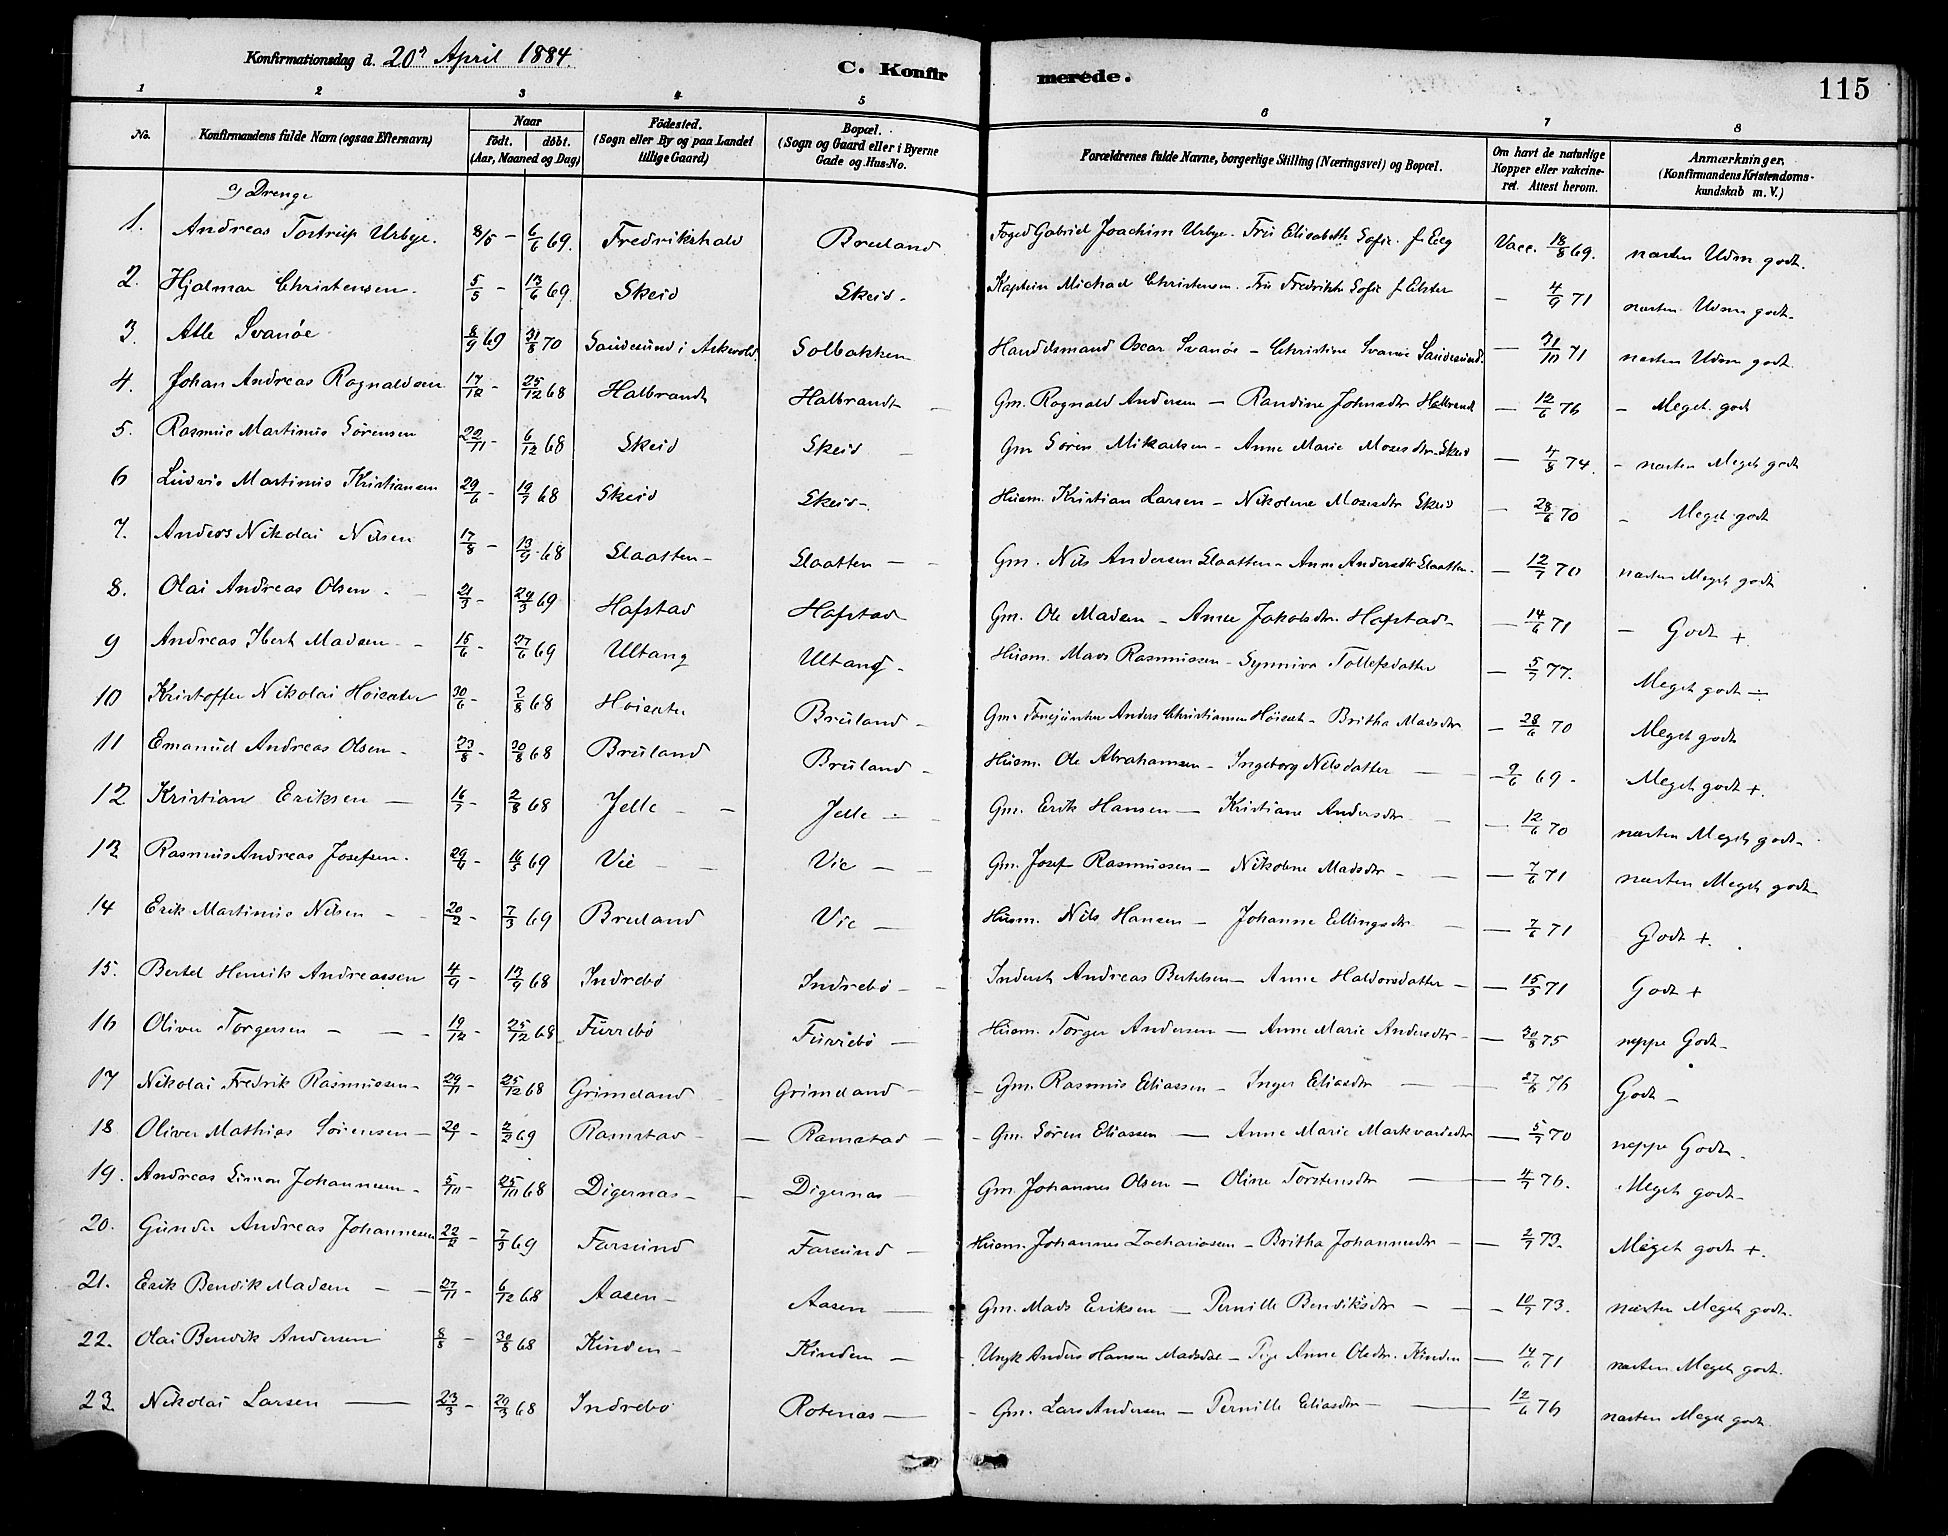 Konfirmationsdag d. 20de April 1884.
C. Konfirmerede.
115
1 2 3 4 5 6 7 8
No.
Konfirmandens fulde Navn (ogsaa Efternavn)
Naar
født. døbt.
(Aar, Maaned og Dag)
Fødested.
(Sogn eller By og paa Landet
tillige Gaard)
Bopæl.
(Sogn og Gaard eller i Byerne
Gade og Hus-No.
Forældrenes fulde Navne, borgerlige Stilling (Næringsvei) og Bopæl.
Om havt de naturlige
Kopper eller vakcine-
ret. Attest herom.
Anmærkninger.
(Konfirmandens Kristendoms-
kundskab m. V.)
a) Drenge
1. Andreas Tostrup Urbye. 8/5 - 6/6 69. Fredrikshald Bruland Foged Gabriel Joachim Urbye. Fru Elisabeth Sofie f. Eeg Vacc. 18/8 69. næsten Udm godt.
2. Hjalmar Christensen. 5/5 - 13/6 69 Skeid Skeid. Kaptein Michael Christensen. Fru Fredrikke Sofie f. Elster - 4/9 71 næsten Udm godt.
3. Atle Svanøe 8/9 69 31/8 70 Sauesund i Askevold Solbakken Handelsmand Oscar Svanøe - Christine Svanøe Sauesund. - 71 næsten Udm godt.
4. Johan Andreas Ragnaldsen 17/12 - 25/12 68 Halbrandt Halbrandt Gm. Ragnald Andersen - Randine Johnsdtr Halbrandt - 12/6 76 - Meget godt
5. Rasmus Martinus Sørensen 22/11 - 6/12 68 Skeid Skeid Gm Søren Mikaelsen - Anne Marie Mosesdtr. Skeid - 4/8 74. - næsten Meget godt
6 Ludvig Martinus Kristiansen 29/6 - 19/7 68 Skeid Skeid. Husm. Kristian Larsen - Nikoline Mosesdtr Skeid - 28/6 70 - Meget godt
7. Anders Nikolai Nilsen 17/8 - 13/9 68 Slaatten - Slaatten - Gm. Nils Andersen Slaatten - Anne Andersdtr Slaatten. - 12/7 70 næsten Meget godt
8. Olai Andreas Olsen. 21/3 - 29/3 69 Hafstad Hafstad Gm. Ole Madsen - Anne Jakobsdtr. Hafstad - 14/6 71 - Godt +
9 Andreas Ibert Madsen - 15/6 - 27/6 69 Ultang Ultang - Husm. Mads Rasmussen - Synniva Tollefsdatter - 5/7 77. Meget godt ÷
10 Kristoffer Nikolai Høisæter 30/6 - 2/8 68 Høisæter Bruland - Gm. Anders Christiansen Høisæt - Britha Madsdtr - 28/6 70 Meget godt
11 Emanuel Andreas Olsen - 23/8 - 30/8 68 Bruland Bruland - Husm. Ole Abrahamsen - Ingeborg Nilsdatter - 9/6 69 - Meget godt +.
12 Kristian Eriksen - 16/7 - 2/8 68 Jelle - Jelle - Gm. Erik Hansen - Kristiane Andersdtr - 12/6 70 næsten Meget godt.
13 Rasmus Andreas Josefsen. - 16/5 69 Vie - Vie - Gm. Josef Rasmussen - Nikoline Madsdtr - - 7/6 71 næsten Meget godt
14 Erik Martinus Nilsen - 20/2 - 7/3 69 Bruland Vie - Husm. Nils Hansen - Johanne Ellingsdtr - 7/6 71 Godt +.
15. Bertel Henrik Andreassen 4/9 - 13/9 68 Indrebø Indrebø - Inderst Andreas Bertelsen - Anne Haldorsdatter - - 15/5 71 Godt +
16 Oliver Torgersen - 19/12 - 25/12 68 Furrebø Furrebø - Husm. Torger Andersen - Anne Marie Andersdtr - - 30/8 75 neppe Godt -
17 Nikolai Fredrik Rasmussen - 29/11 - 25/12 68 Grimeland Grimeland - Gm. Rasmus Eliassen - Inger Eliasdtr - 27/6 76 Godt -
18 Oliver Mathias Sørensen - 20/1 - 2/2 69 Ramstad - Ramstad - Gm. Søren Eliassen - Anne Marie Markvardsdtr - 5/7 70 neppe Godt -
19. Andreas Simon Johannesen - 5/11 - 25/11 68 Digernæs - Digernæs - Gm. Johannes Olsen - Oline Torstensdtr - 4/7 76. Meget godt -
20. Gunder Andreas Johannesen 22/2 - 7/3 69 Farsund Farsund - Husm. Johannes Zachariasen - Britha Johannesdtr - - 2/7 73. Meget godt +.
21. Erik Bendik Madsen - 27/11 - 6/12 68 Aasen - Aasen - Gm. Mads Eriksen - Pernille Bendiksdtr - - 10/7 73. næsten Meget godt.
22. Olai Bendik Andersen 8/8 - 30/8 68 Kinden - Kinden - Ungk Anders Hansen Madsdal - Pige Anne Olsdtr. Kinden - 14/6 71 næsten Meget godt.
23. Nikolai Larsen - 23/3 - 29/3 68 Indrebø Rotenæs - Gm. Lars Andersen - Pernille Eliasdtr - 12/6 76 næsten Meget godt.